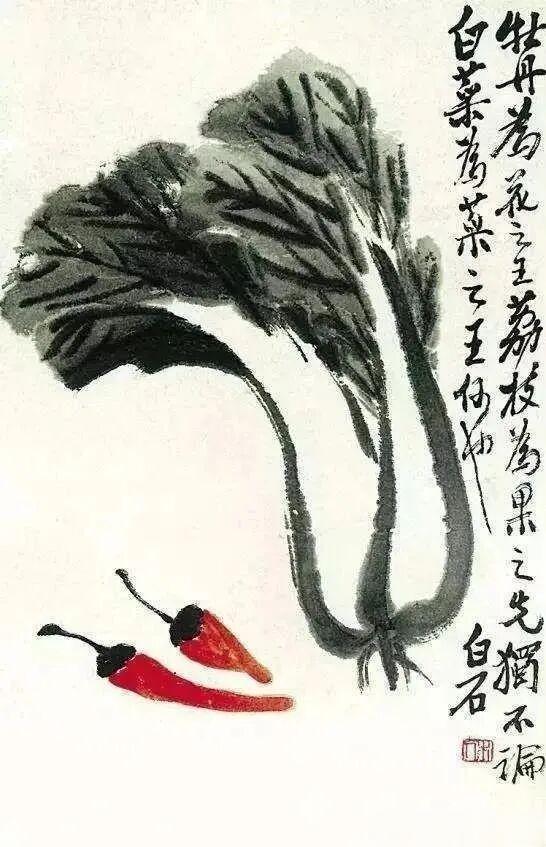 牡丹為花之王荔枝為果之先獨不論
白菜為菜之王何也
白石